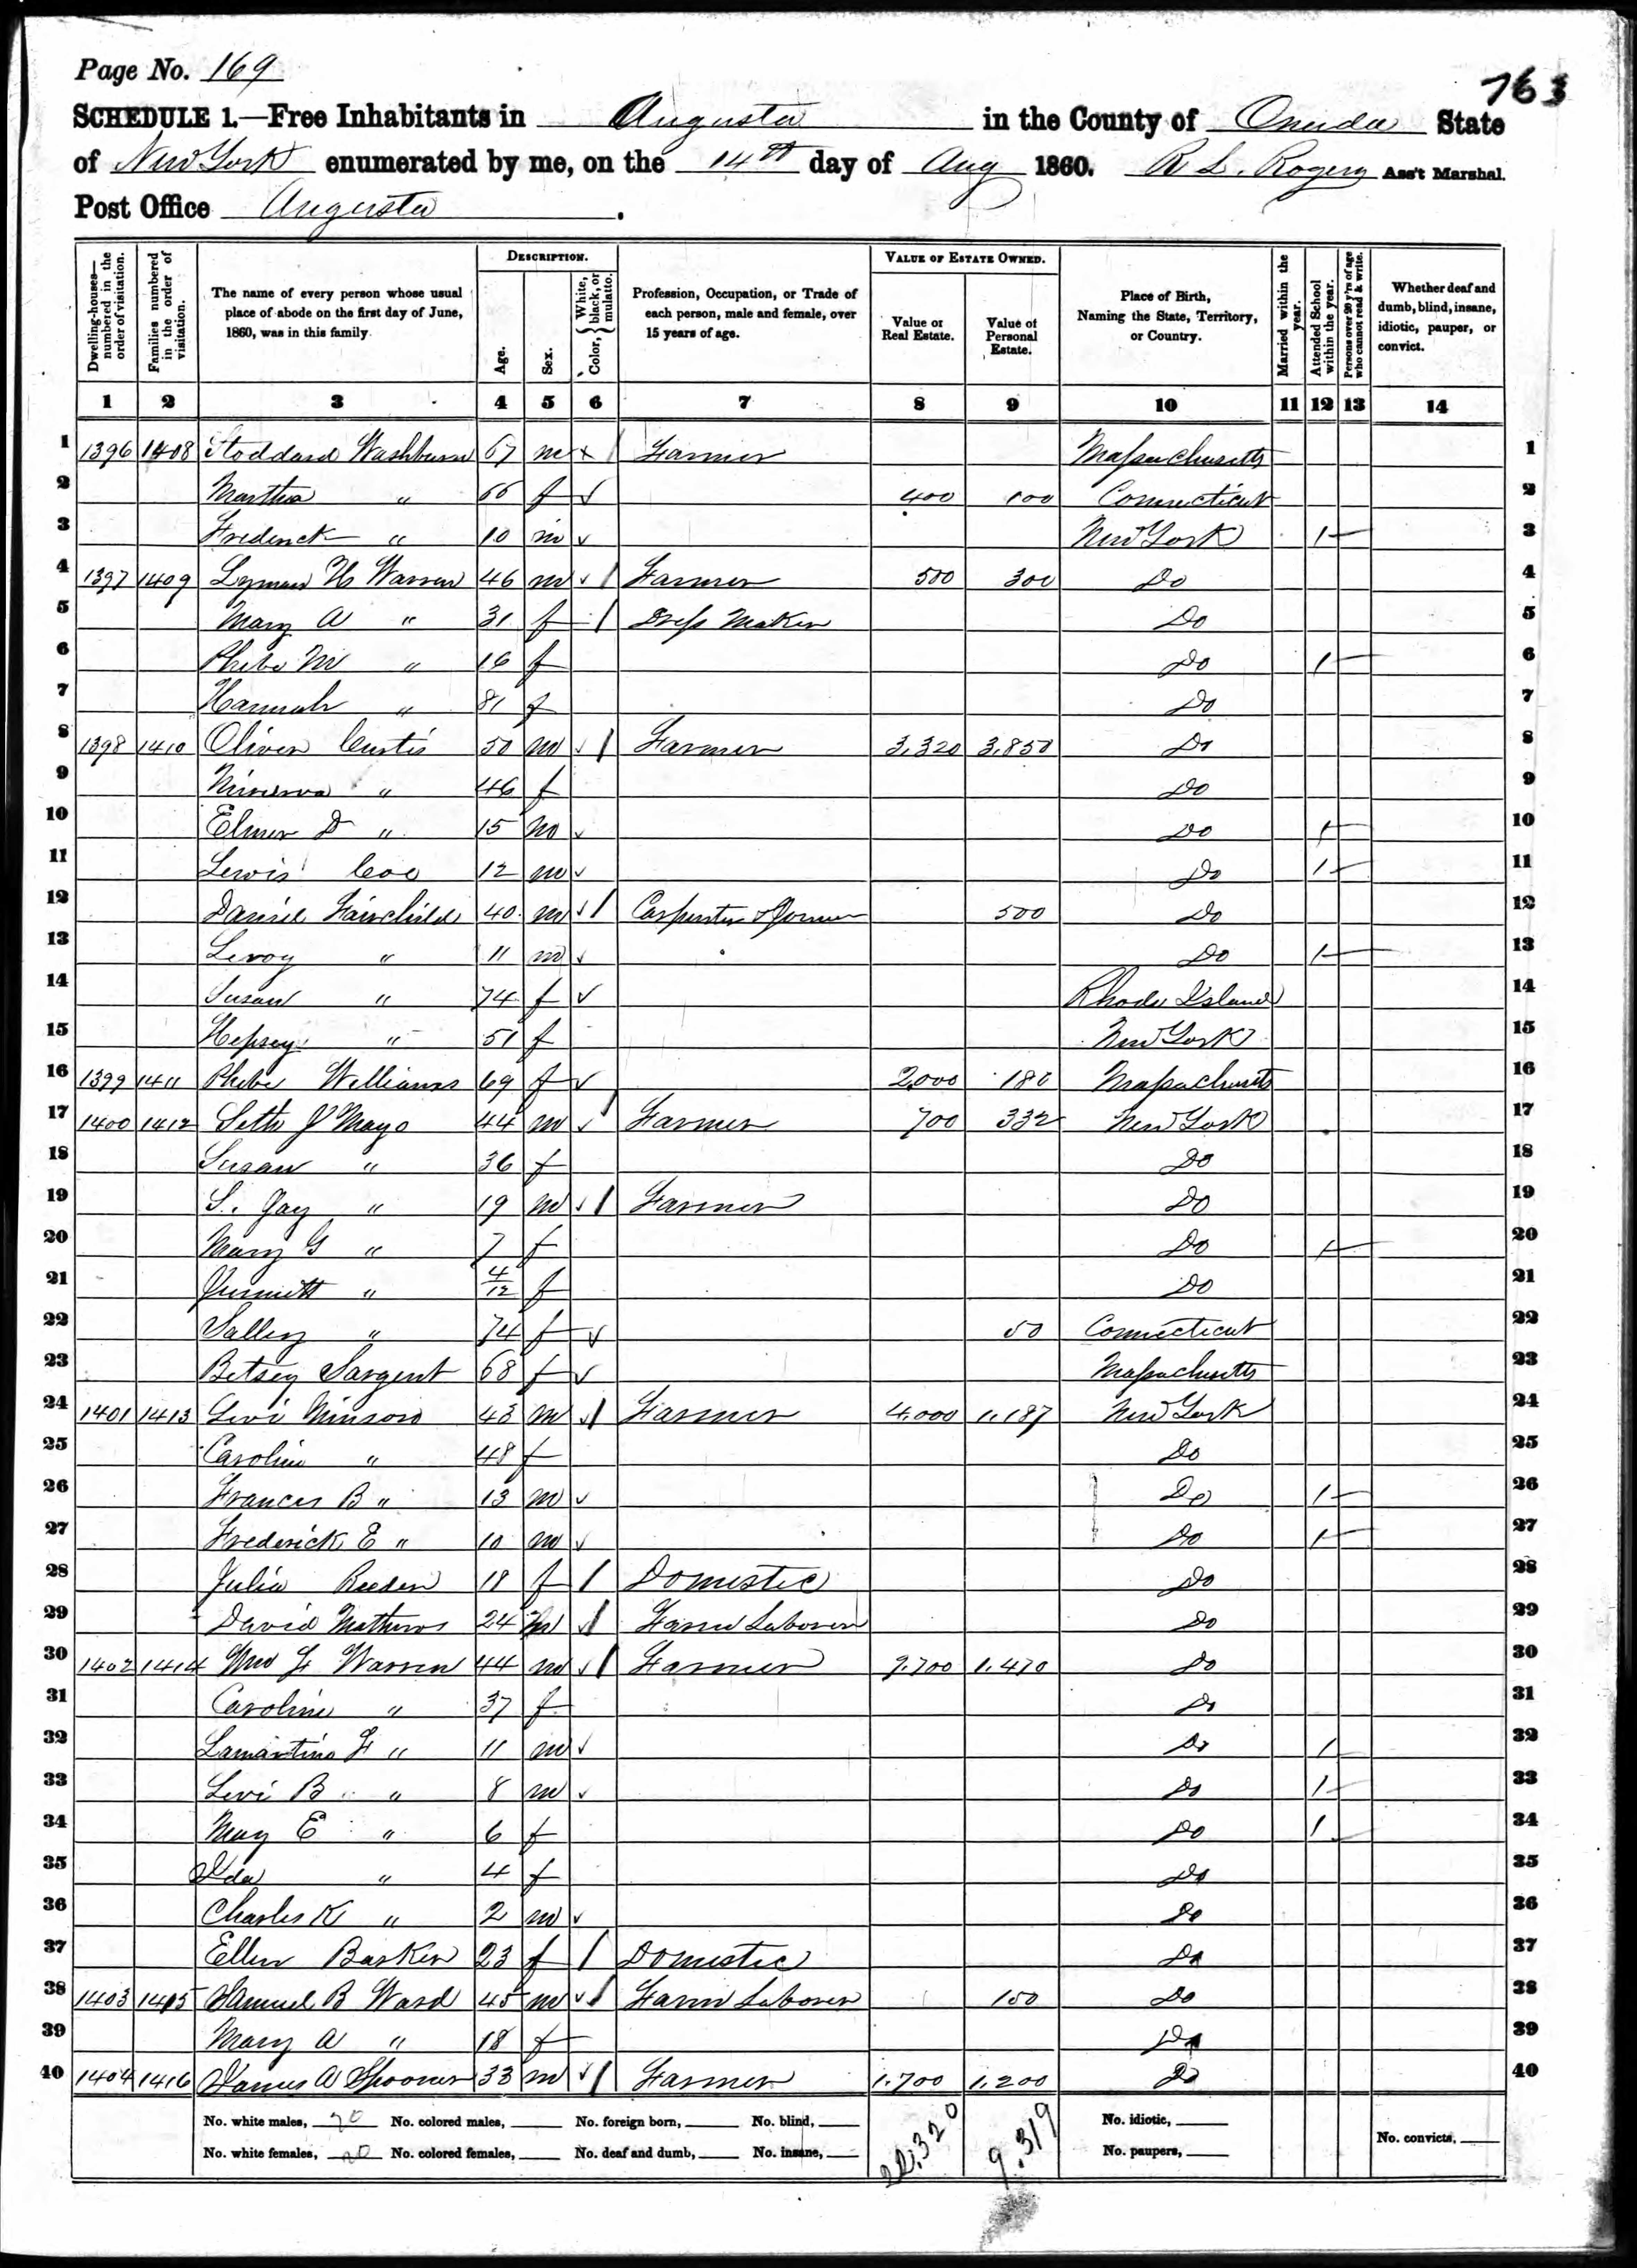 Page No. 169
763
SCHEDULE 1.—Free Inhabitants in Augusta in the County of Oneida State
of New York enumerated by me, on the 14th day of Aug 1860. R L. Rogers Ass't Marshal.
Post Office Augusta.
Dwelling-houses—numbered in the order of visitation.
Families numbered in the order of visitation.
The name of every person whose usual place of abode on the first day of June, 1860, was in this family.
DESCRIPTION.
Age.
Sex.
Color, { White, black, or mulatto.
Profession, Occupation, or Trade of each person, male and female, over 15 years of age.
VALUE OF ESTATE OWNED.
Value of Real Estate.
Value of Personal Estate.
Place of Birth, Naming the State, Territory, or Country.
Married within the year.
Attended School within the year.
Persons over 20 y'rs of age who cannot read & write.
Whether deaf and dumb, blind, insane, idiotic, pauper, or convict.
1 2 3 4 5 6 7 8 9 10 11 12 13 14
1 1396 1408 Stoddard Washburn 67 m Farmer Massachusetts 1
2 Martha " 66 f 400 100 Connecticut 2
3 Frederick " 10 m New York 1 3
4 1397 1409 Lyman H Warren 46 m Farmer 500 300 Do 4
5 Mary A " 31 f Dress Maker Do 5
6 Phebe M " 16 f Do 1 6
7 Hannah " 81 f Do 7
8 1398 1410 Oliver Curtis 50 m Farmer 3,320 3,850 Do 8
9 Minerva " 46 f Do 9
10 Elmer D " 15 m Do 1 10
11 Lewis Coe 12 m Do 1 11
12 Daniel Fairchild 40 m Carpenter & Joiner 500 Do 12
13 Leroy " 11 m Do 1 13
14 Susan " 74 f Rhode Island 14
15 Hepsey " 51 f New York 15
16 1399 1411 Phebe Williams 69 f 2,000 180 Massachusetts 16
17 1400 1412 Seth J Mayo 44 m Farmer 700 332 New York 17
18 Susan " 36 f Do 18
19 S. Jay " 19 m Farmer Do 19
20 Mary G " 7 f Do 1 20
21 " 4/12 f Do 21
22 Salley " 74 f 50 Connecticut 22
23 Betsey Sargent 68 f Massachusetts 23
24 1401 1413 Levi Munson 43 m Farmer 4,000 1,187 New York 24
25 Caroline " 48 f Do 25
26 Frances B " 13 m Do 1 26
27 Frederick E " 10 m Do 1 27
28 Julia 18 f Domestic Do 28
29 David Mathews 24 m Farm Laborer Do 29
30 1402 1414 Wm F Warren 44 m Farmer 9,700 1,470 Do 30
31 Caroline " 37 f Do 31
32 Lamartine F " 11 m Do 1 32
33 Levi B " 8 m Do 1 33
34 May E " 6 f Do 1 34
35 Ida " 4 f Do 35
36 Charles K " 2 m Do 36
37 Ellen Barker 23 f Domestic Do 37
38 1403 1415 Samuel B Ward 45 m Farm Laborer 150 Do 38
39 Mary A " 18 f Do 39
40 1404 1416 James A Spooner 33 m Farmer 1,700 1,200 Do 40
No. white males, 20 No. colored males, No. foreign born, No. blind, 22,320 9,319 No. idiotic,
No. white females, 20 No. colored females, No. deaf and dumb, No. insane, No. paupers, No. convicts,